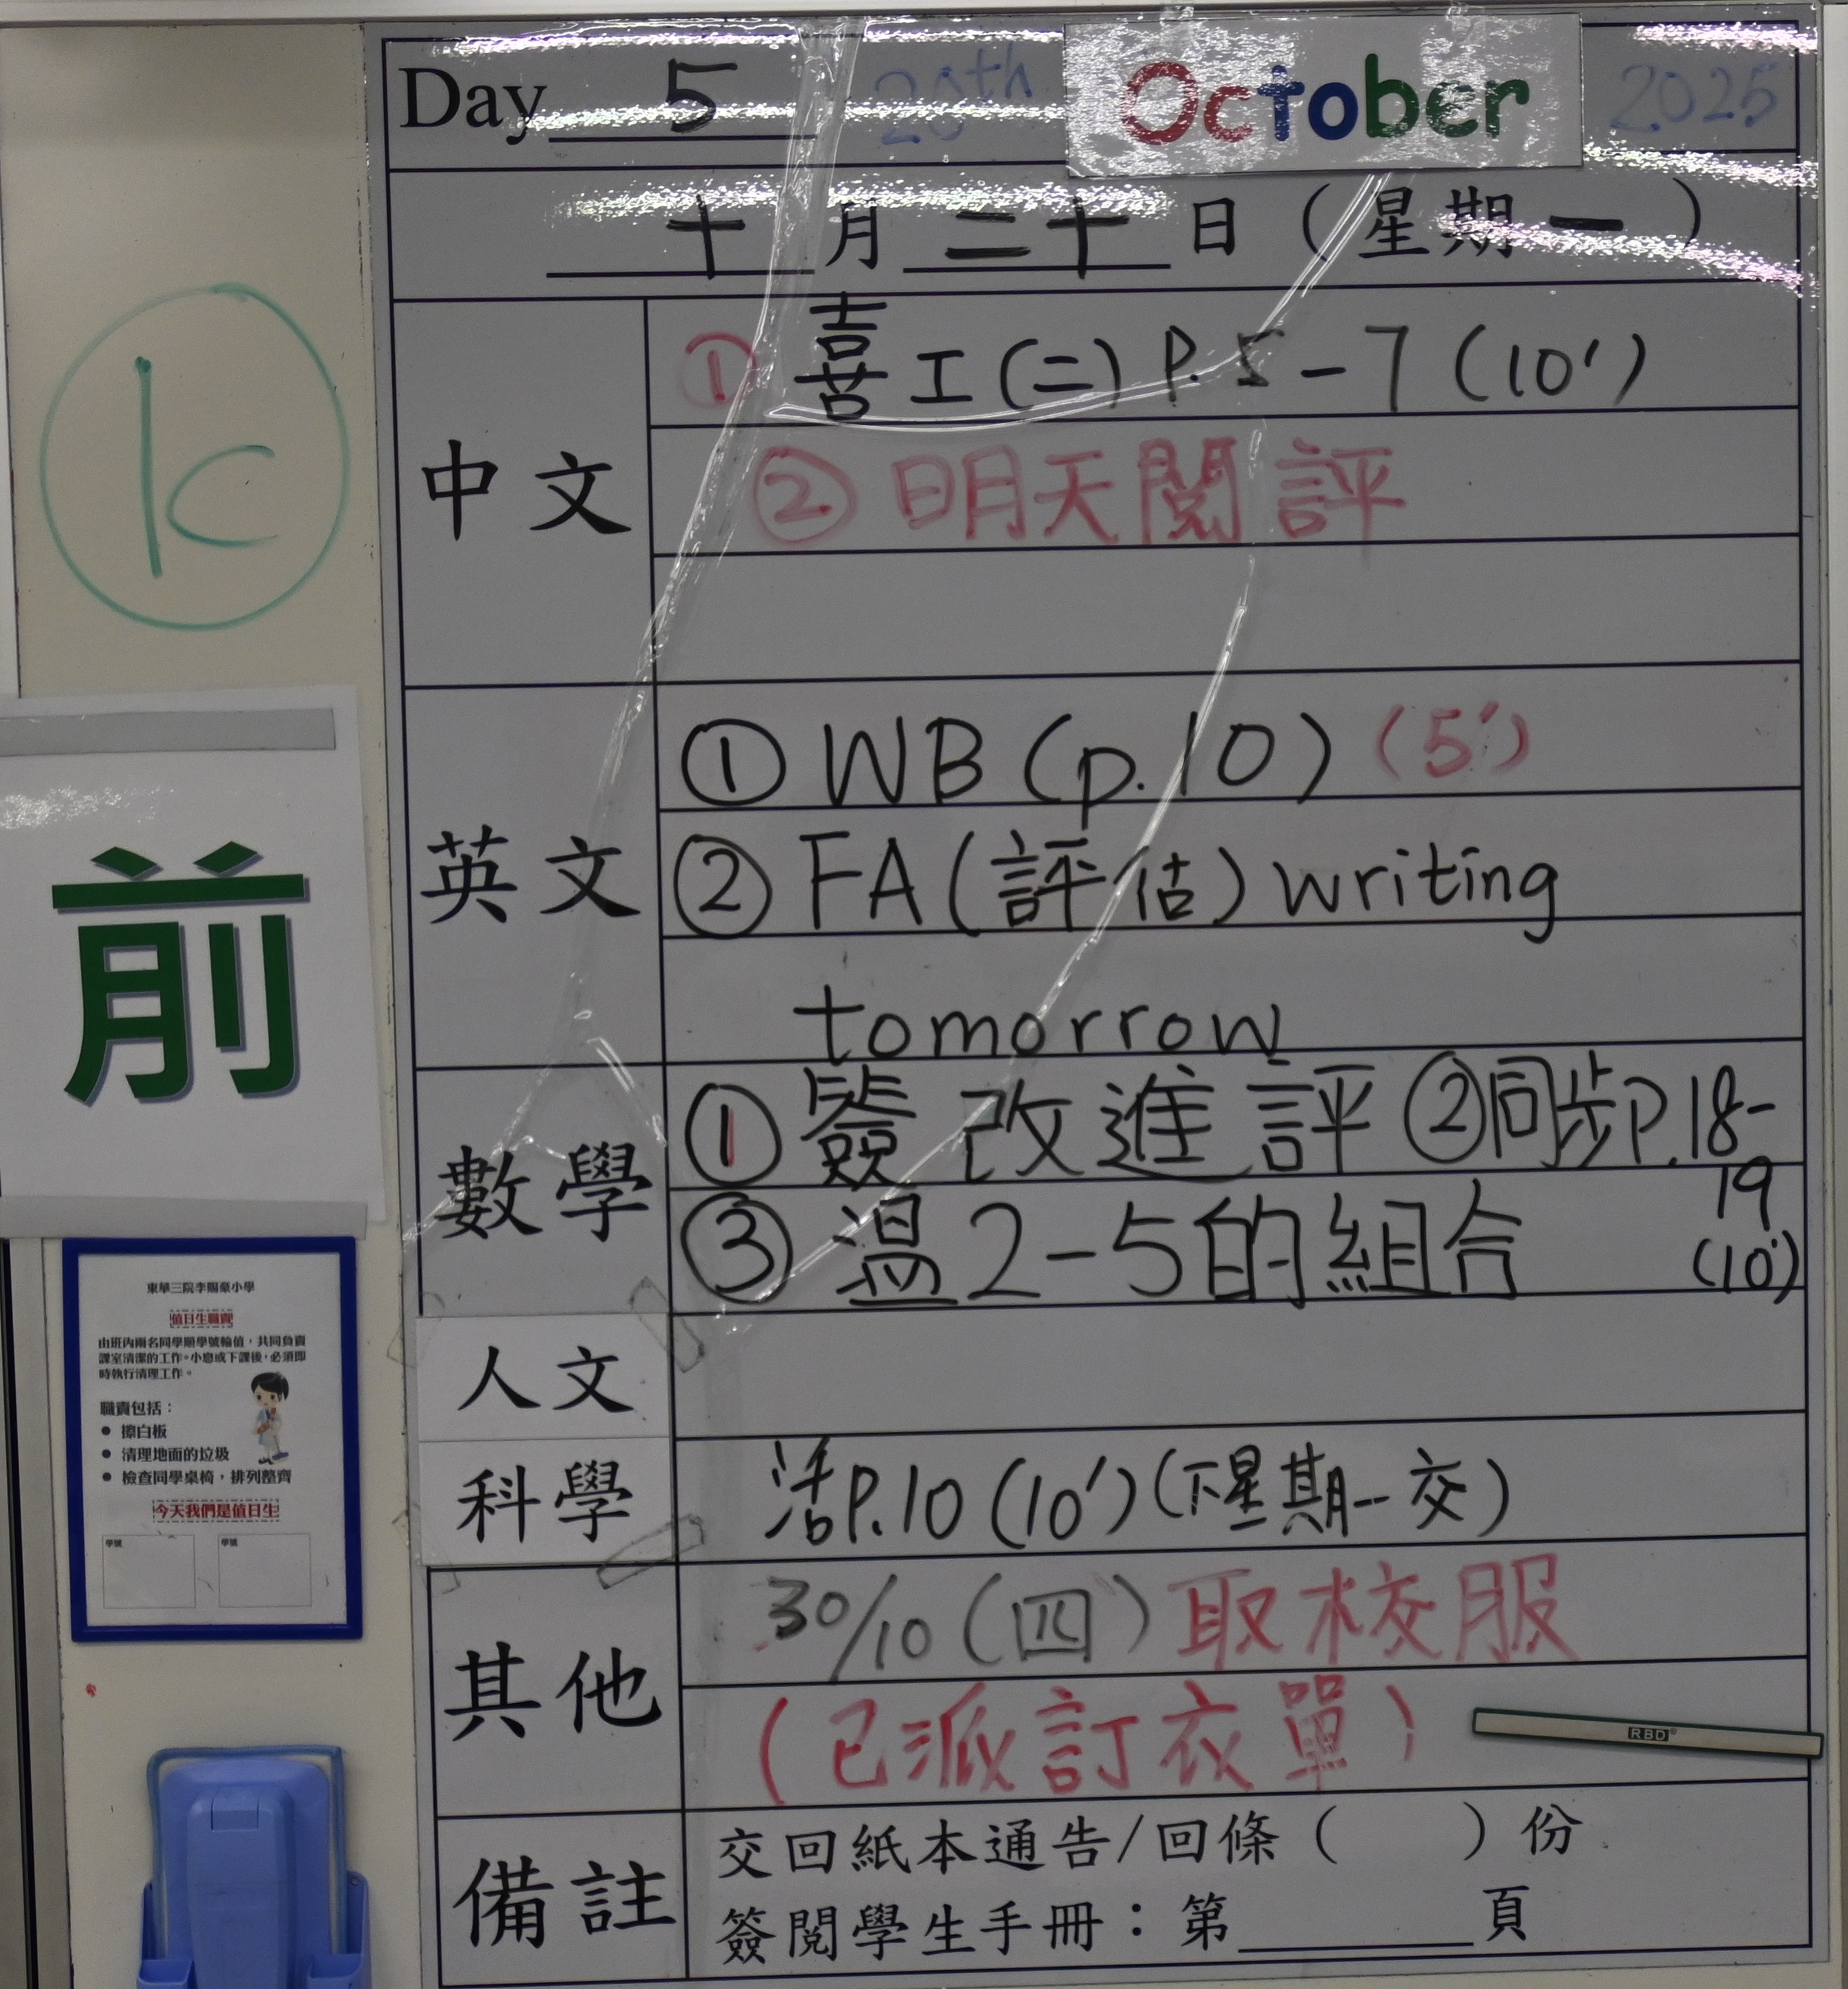 Day 5 20th October 2025
十月二十日（星期一）
中文
① 喜工(二) P.5-7 (10')
② 明天閱評
英文
① WB (p.10) (5')
② FA (評估) writing
tomorrow
數學
① 簽改進評 ② 同步P.18-
19
(10')
③ 溫2-5的組合
人文
科學
活P.10 (10') (下星期一交)
其他
30/10 (四) 取校服
(已派訂衣單)
RBD
備註
交回紙本通告/回條（ ）份
簽閱學生手冊：第 頁
k
前
東華三院李賜豪小學
值日生職責
由班內兩名同學順學號輪值，共同負責
課室清潔的工作。小息或下課後，必須即
時執行清理工作。
職責包括：
● 擦白板
● 清理地面的垃圾
● 檢查同學桌椅，排列整齊
今天我們是值日生
學號 學號